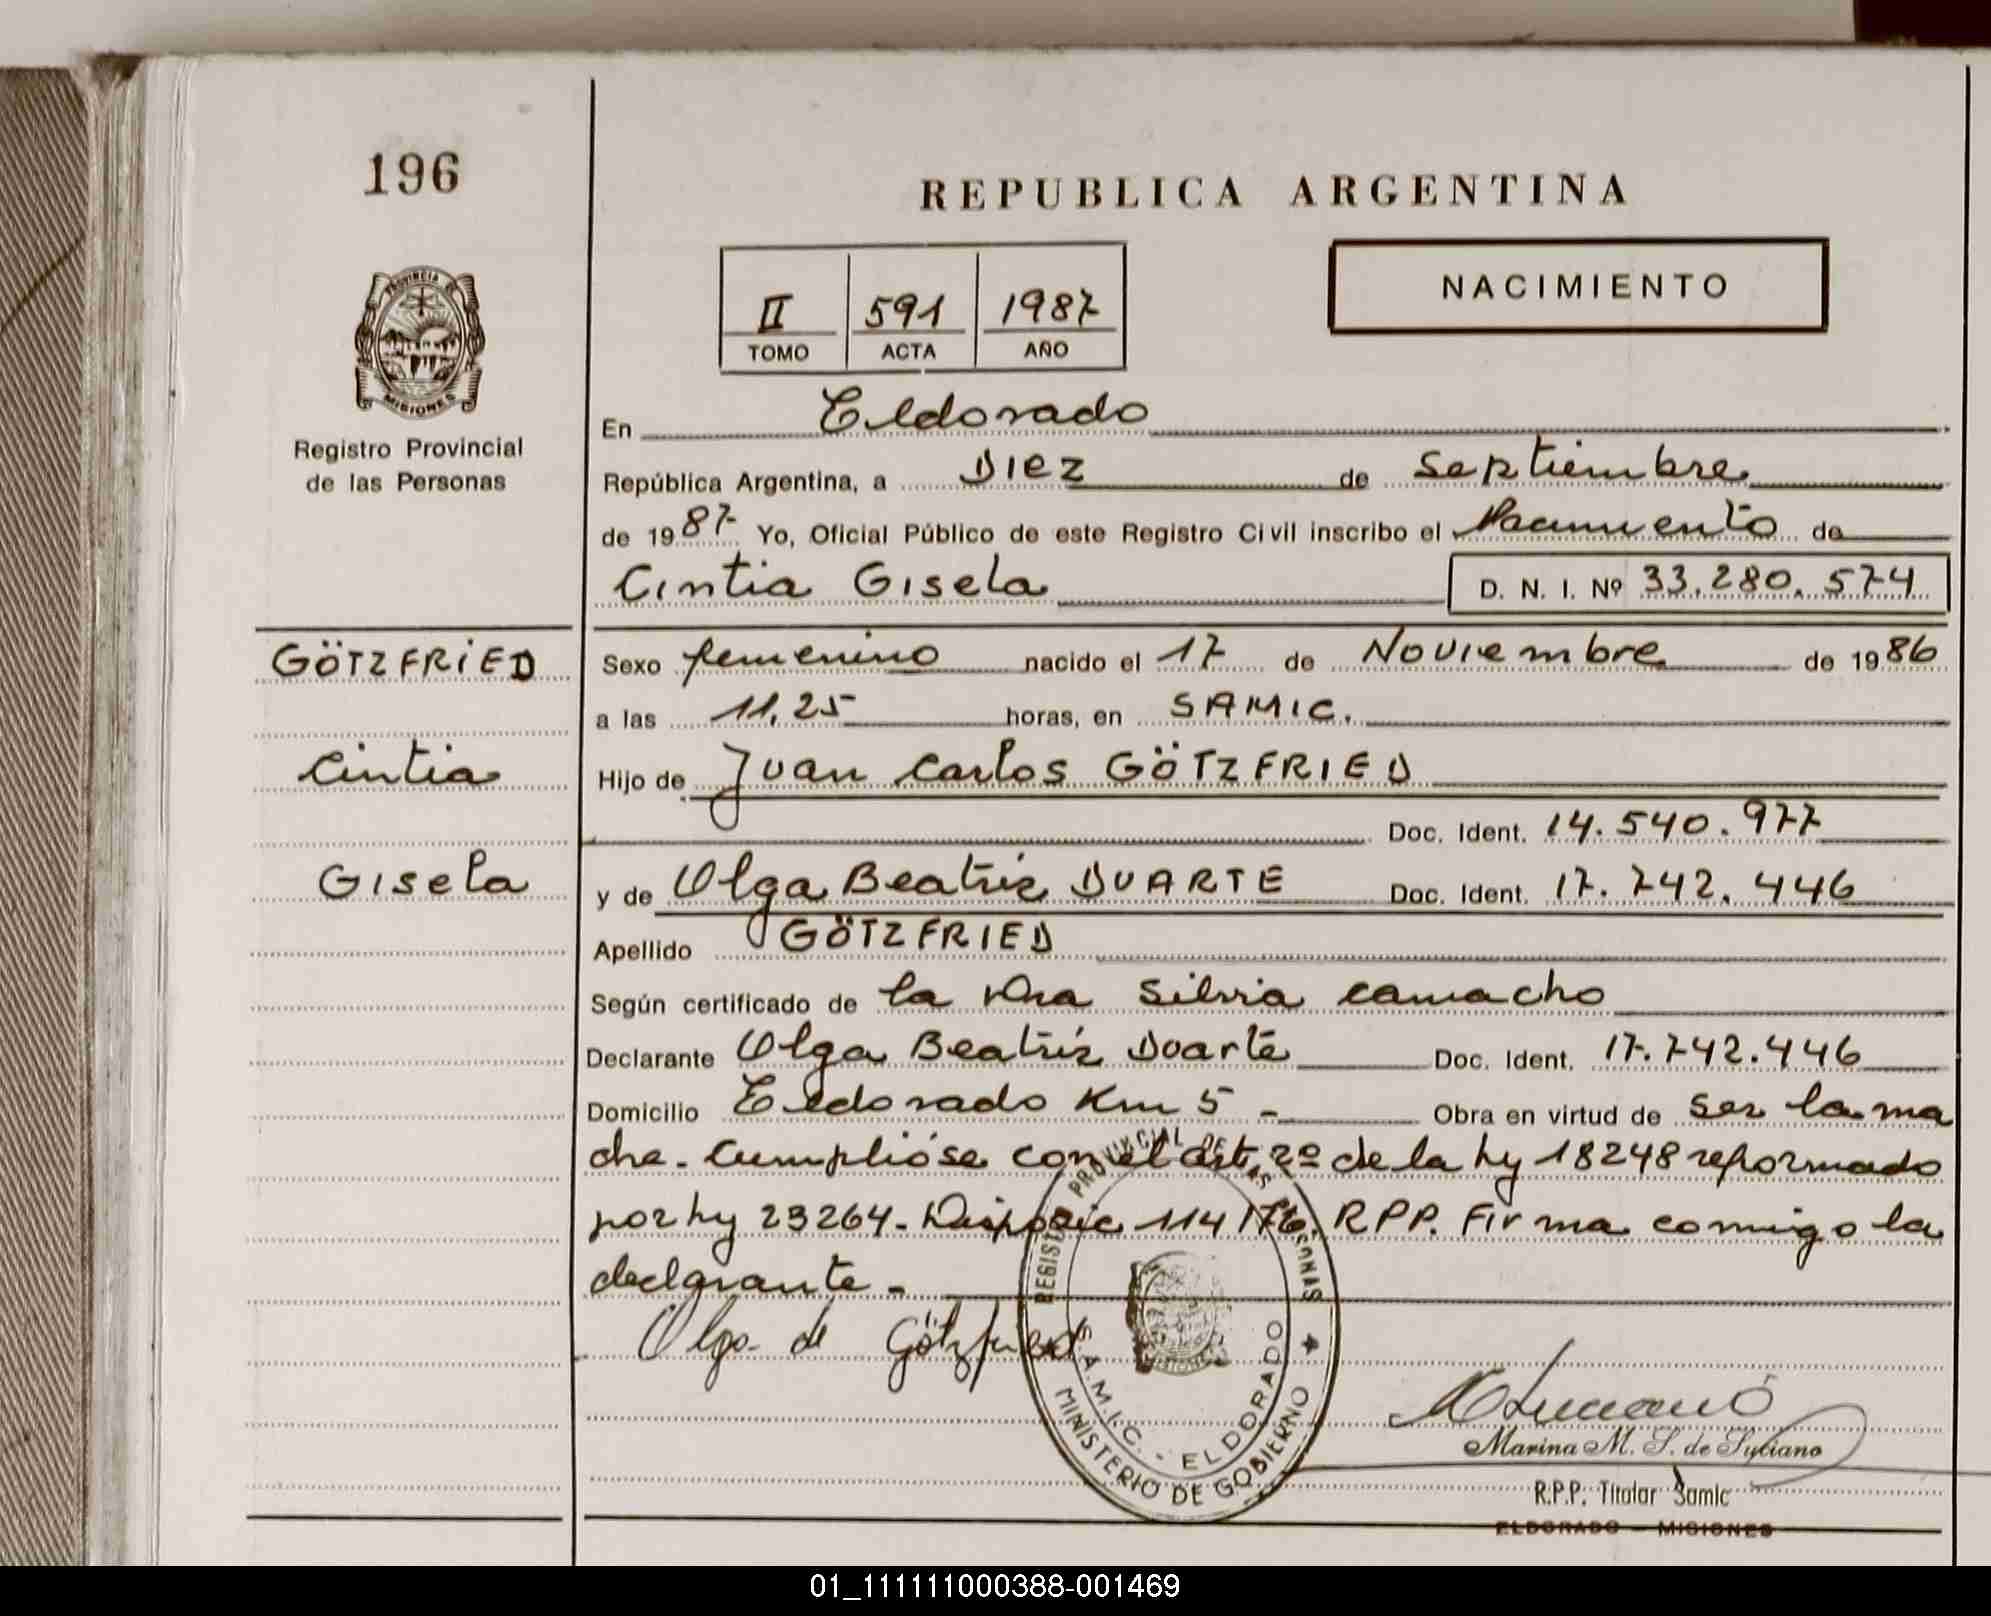 196
REPUBLICA ARGENTINA
PROVINCIA DE
MISIONES
Registro Provincial
de las Personas
II 591 1987
TOMO ACTA AÑO
NACIMIENTO
En Eldorado
República Argentina, a Diez de Septiembre
de 1987 Yo, Oficial Público de este Registro Civil inscribo el Nacimiento de
Cintia Gisela D. N. I. Nº 33.280.574
GÖTZFRIED
Cintia
Gisela
Sexo femenino nacido el 17 de Noviembre de 1986
a las 11.25 horas, en SAMIC.
Hijo de Juan Carlos GÖTZFRIED
Doc. Ident. 14.540.977
y de Olga Beatriz DUARTE Doc. Ident. 17.742.446
Apellido GÖTZFRIED
Según certificado de la Dra Silvia Camacho
Declarante Olga Beatriz Duarte Doc. Ident. 17.742.446
Domicilio Eldorado Km 5 - Obra en virtud de ser la ma
dre. Cumplióse con el art 2º de la ley 18248 reformado
por ley 23264. Disposic 114/76. RPP. Firma comigo la
declarante -
Olga de Götzfried
REGISTRO PROVINCIAL DE LAS PERSONAS
S.A.M.I.C. - ELDORADO
MINISTERIO DE GOBIERNO
Marina M. S. de
R.P.P. Titular Samic
ELDORADO - MISIONES
01_111111000388-001469